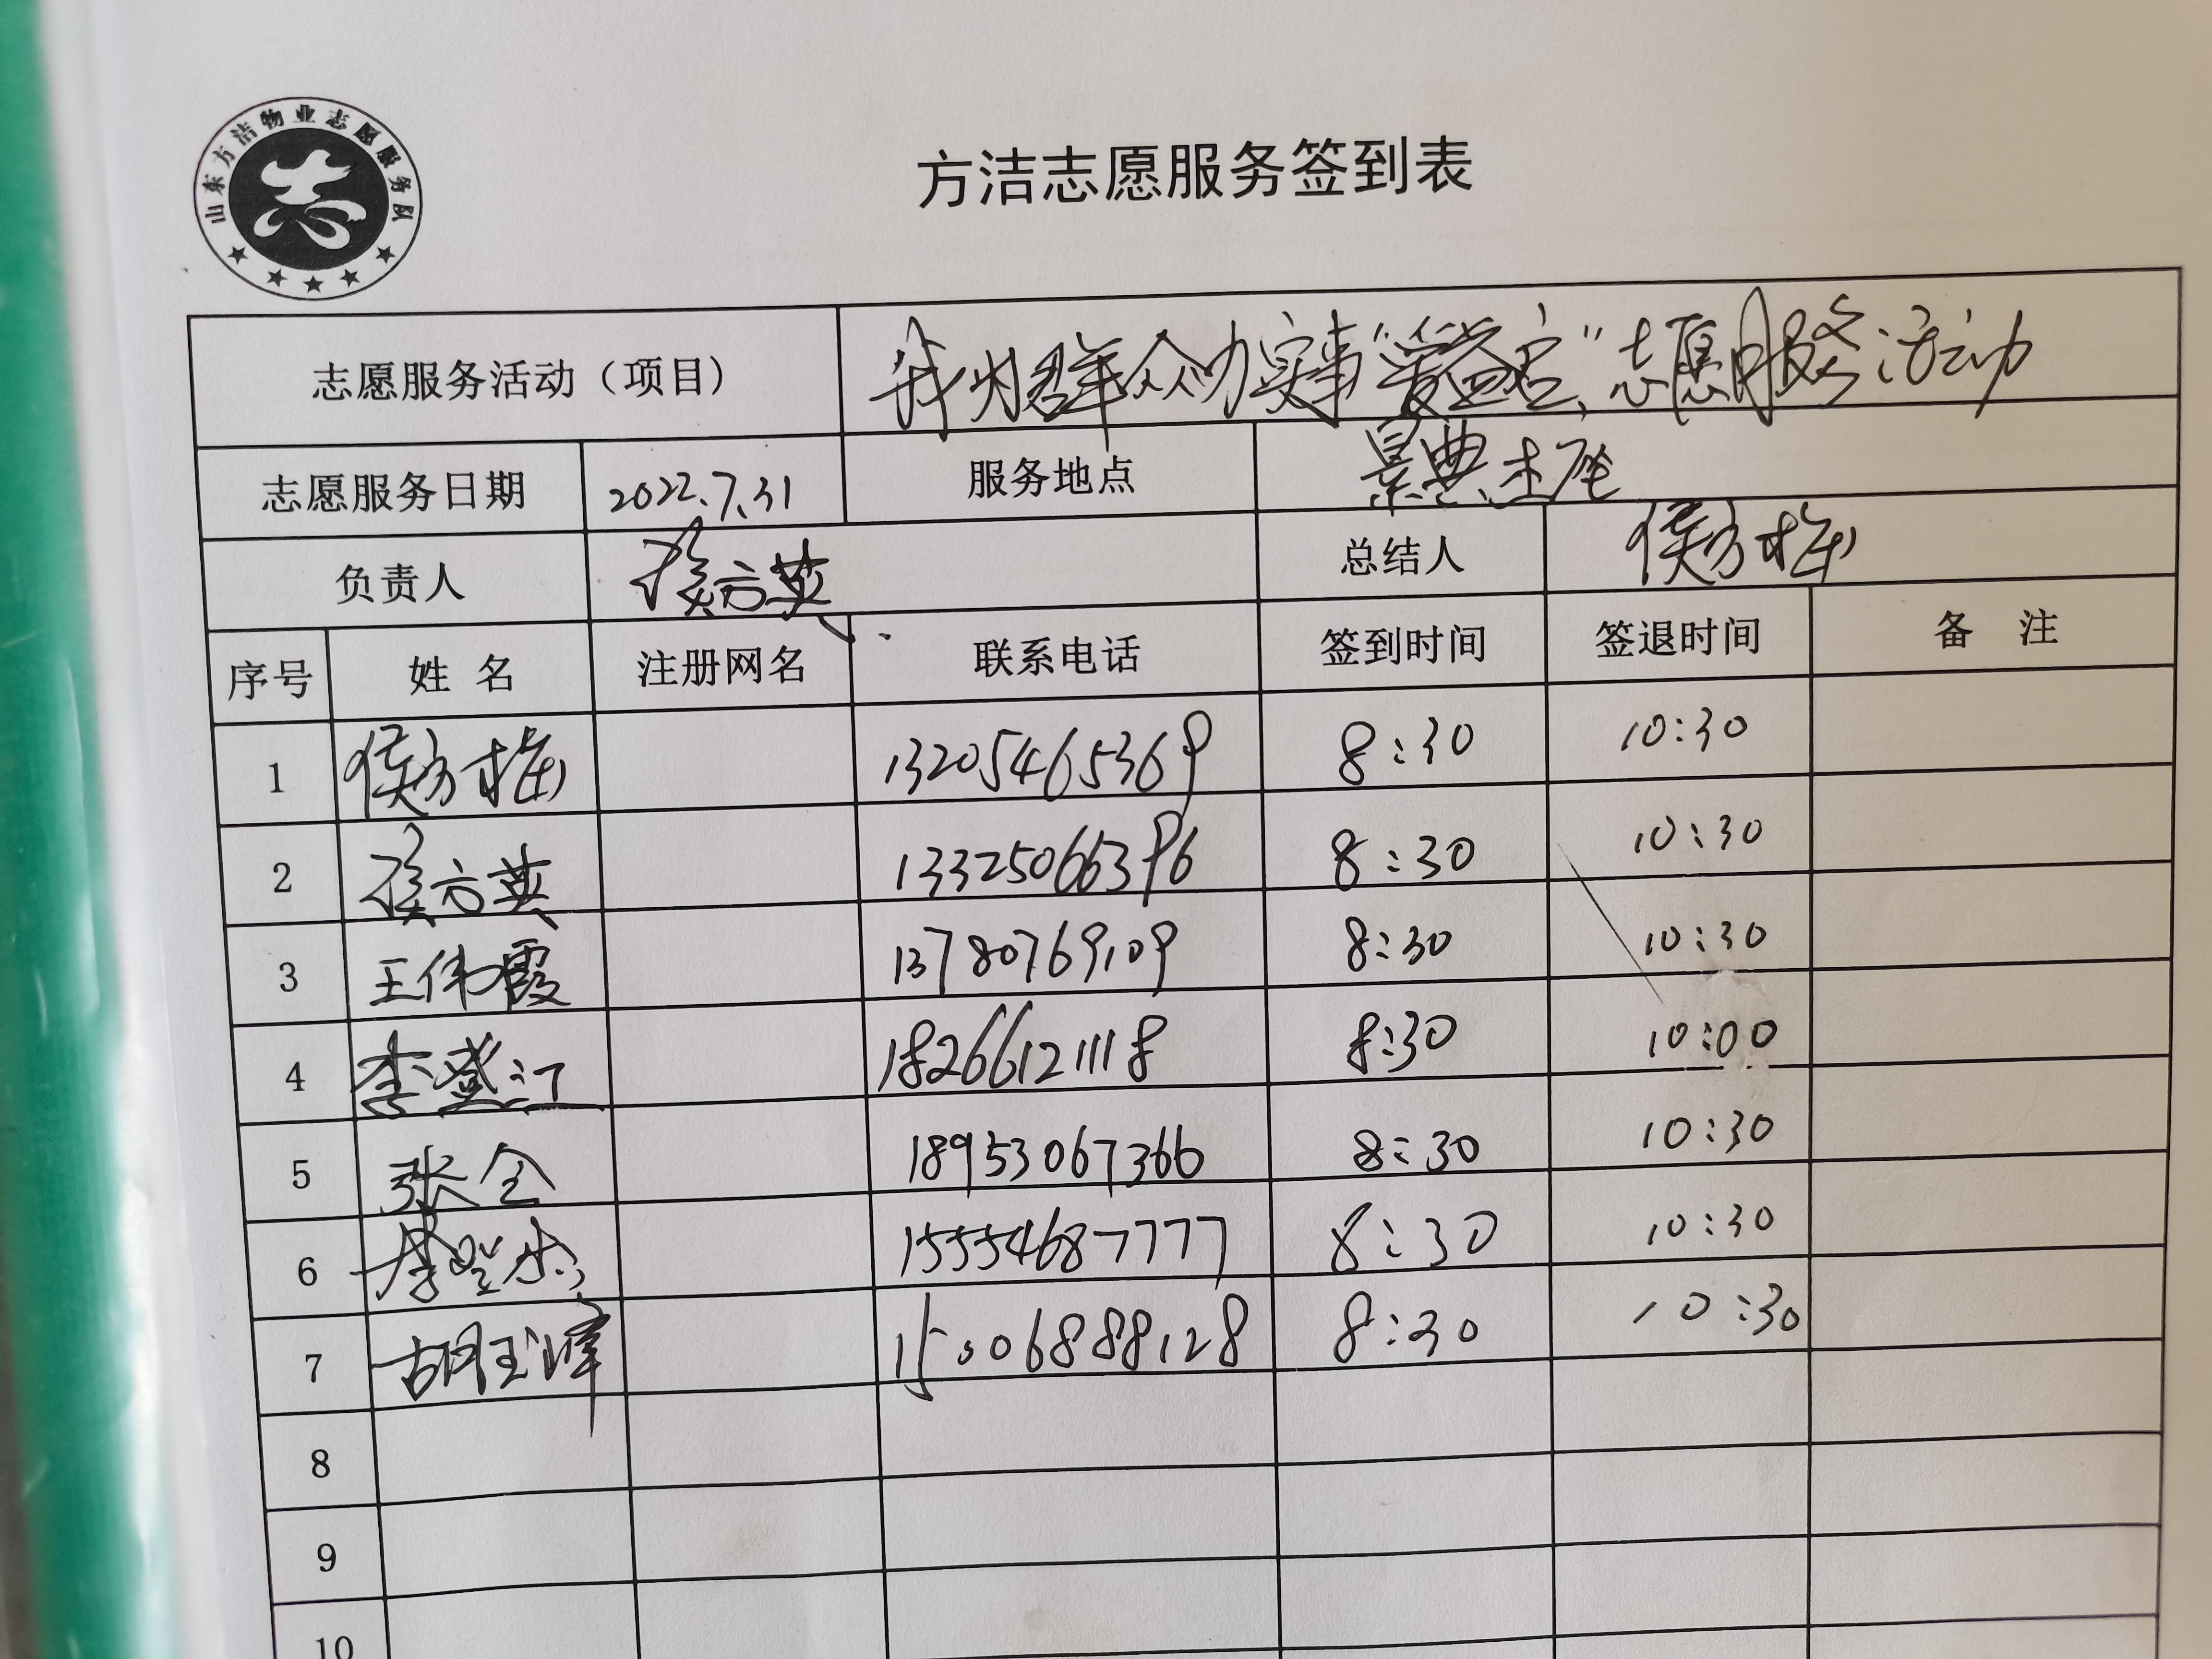 山东方洁物业志愿服务队
方洁志愿服务签到表
志愿服务活动（项目） 我为群众办实事"爱益家"志愿服务活动
志愿服务日期 2022.7.31 服务地点 景典
负责人 侯方英 总结人 侯方梅
序号 姓 名 注册网名 联系电话 签到时间 签退时间 备 注
1 侯方梅 13205465369 8:30 10:30
2 侯方英 13325066396 8:30 10:30
3 王伟霞 13780769109 8:30 10:30
4 李登江 18266121118 8:30 10:00
5 张全 18953067366 8:30 10:30
6 李 15554687777 8:30 10:30
7 胡玉 15006888128 8:30 10:30
8
9
10